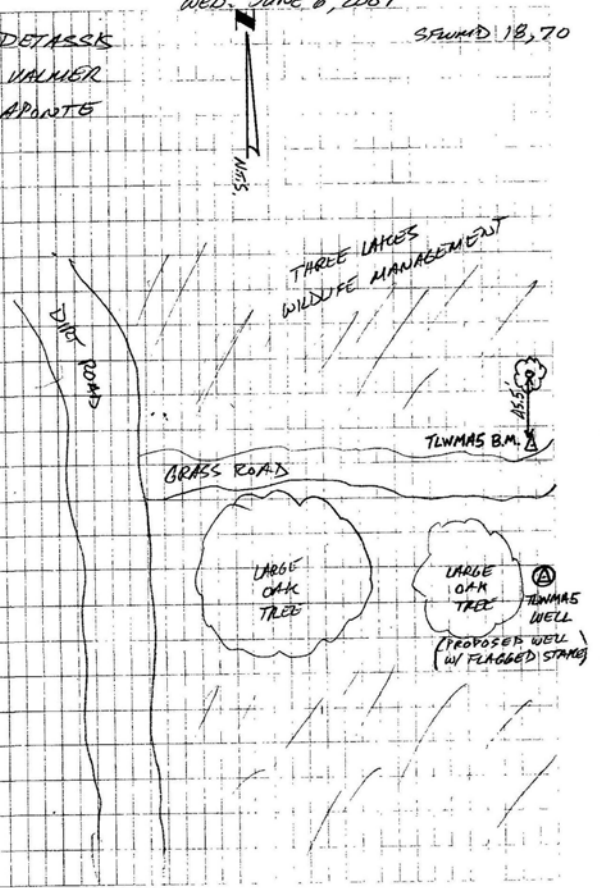 WED. JUNE 6, 2007
DETASSIS
VALMER
APONTE
SFWMD 18,70
N
N.T.S.
THREE LAKES
WILDLIFE MANAGEMENT
DIRT ROAD
45.5'
TLWMA5 B.M.
GRASS ROAD
LARGE
OAK
TREE
LARGE
OAK
TREE
TLWMA5
WELL
(PROPOSED WELL
W/ FLAGGED STAKE)